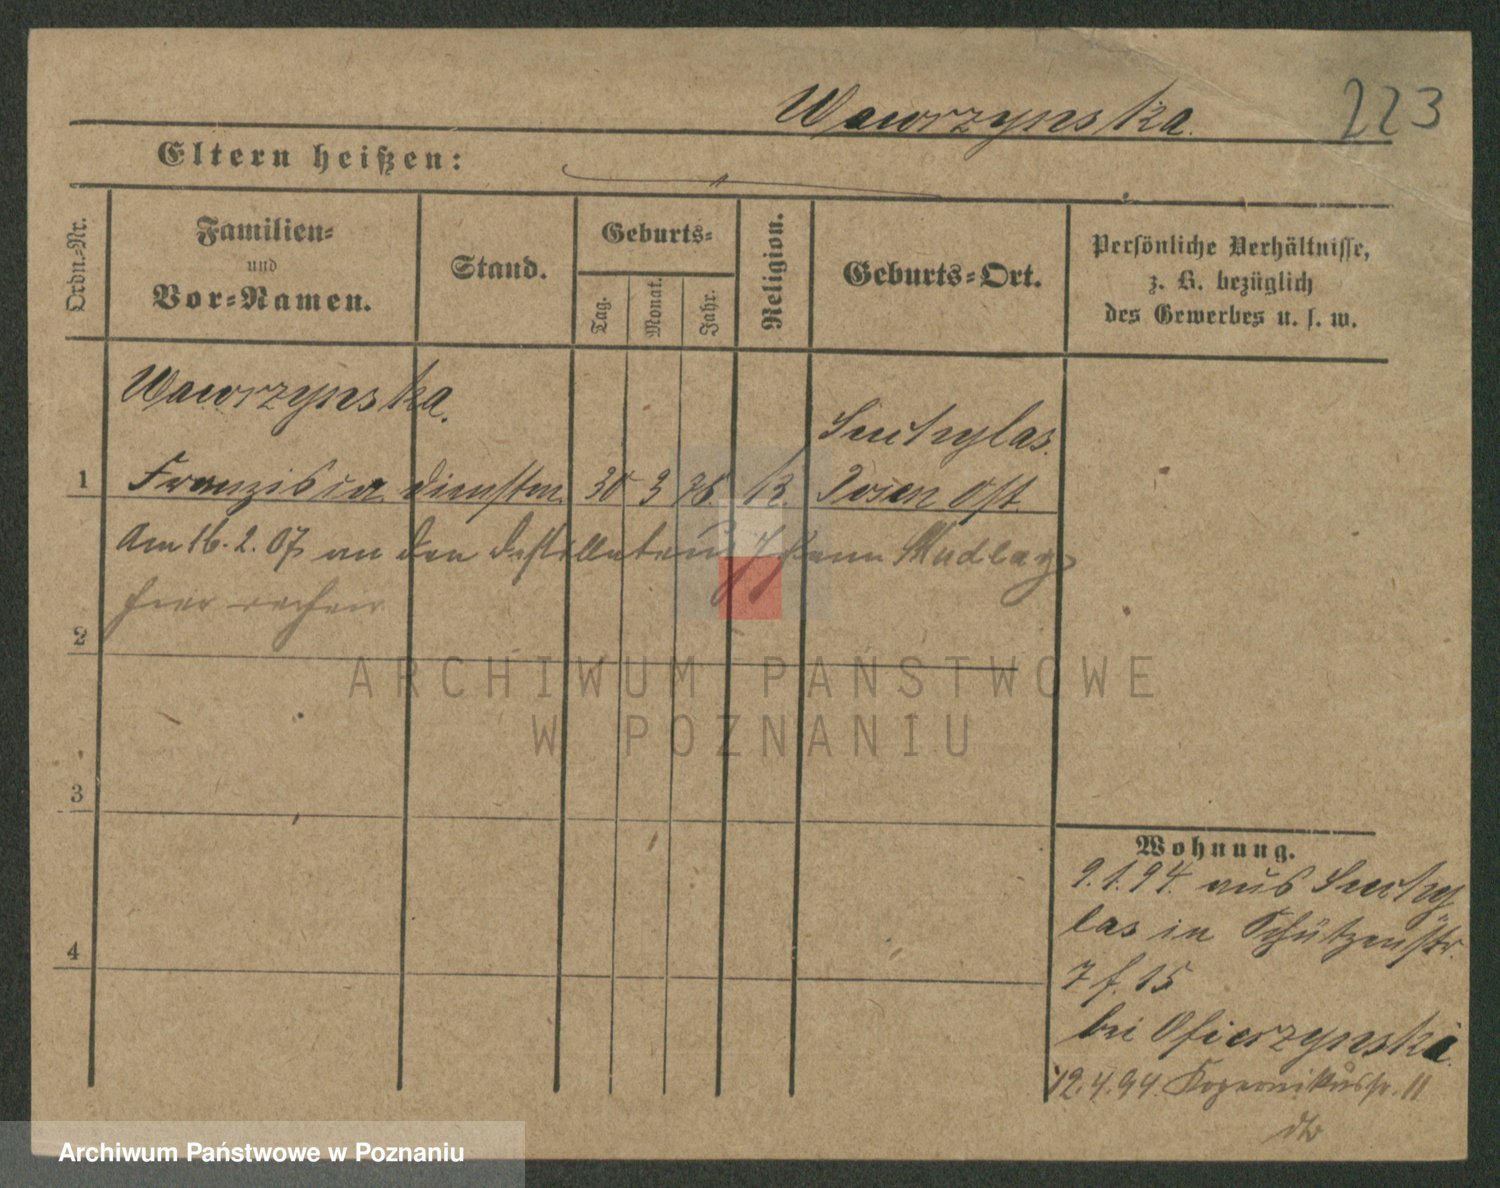 Wawrzynska.
223
Eltern heißen:
Ordn.-Nr.
Familien-
und
Vor-Namen.
Stand.
Geburts-
Tag.
Monat.
Jahr.
Religion.
Geburts-Ort.
Persönliche Verhältnisse,
z. B. bezüglich
des Gewerbes u. s. w.
Wawrzynska.
Suchylas.
1 Franziska 30 3 Posen Ost
Am 16. 2. 07 an den
hier
2
ARCHIWUM PAŃSTWOWE
W POZNANIU
3
Wohnung.
9.1.94. aus Suchy
las in Schützenstr.
4
7 15
bei Ofierzynska
12.4.94. 11
Archiwum Państwowe w Poznaniu